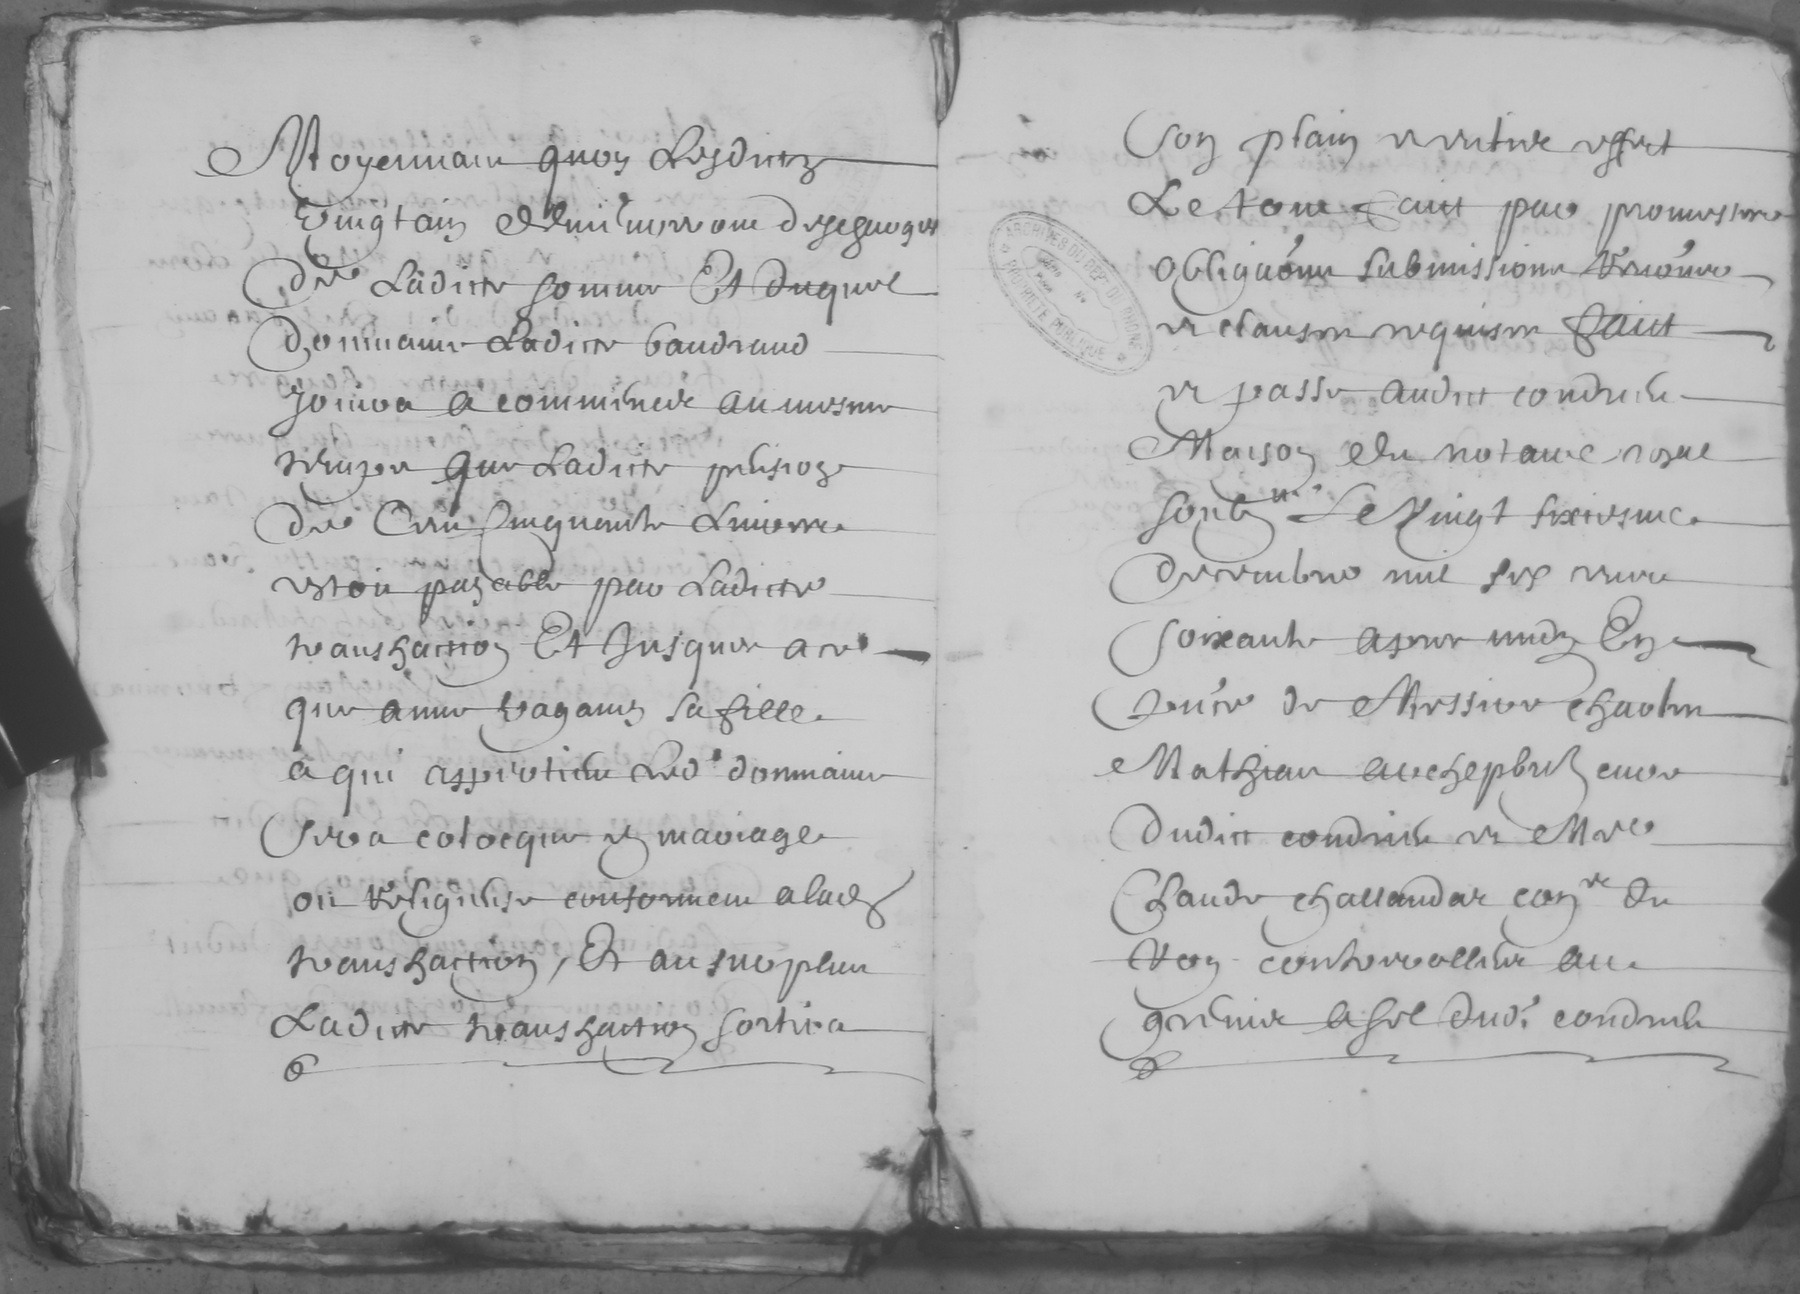 Moyennant quoy Lesdictz
Vingtain demeureront deschargés
de Ladicte somme Et duquel
Dommaine Ladicte baudrand
Jouira a commencer au mesme
temps que Ladicte pension
de Cent Cinquante Livres
estoit payable par Ladicte
transaction Et Jusques a ce
que anne sa fille
a qui appartient Led.t dommaine
sera coloquee en mariage
ou Religieuse conformem.t a lad.e
transaction, Et au surplus
Ladicte transaction sortira
son plain et entier effect
Le tout faict par promesses
obliga'ons submissions Renon'ons
et clauses requises faict
et passé audict condrieu
Maison du notaire royal
soub.né Le Vingt sixiesme
decembre mil six cens
soixante apres midy En
p'nce de Messire charles
Mathieu archeptre curé
dudict condrieu et M.re
Claude con.er du
Roy controolleur au
grenier a sel dud.t condrieu
ARCHIVES DU DEP.T DU RHONE
PROPRIETE PUBLIQUE